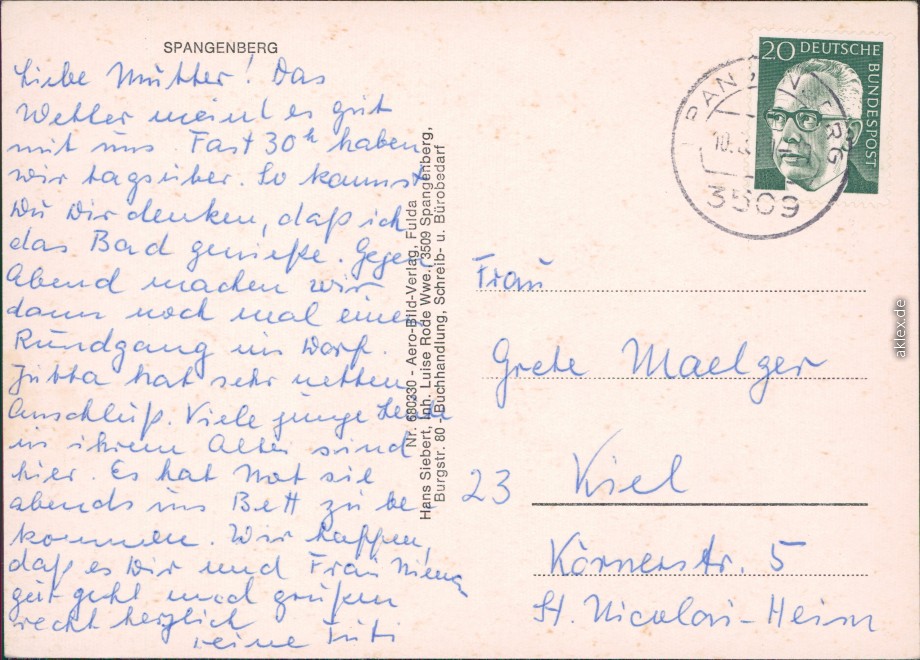 SPANGENBERG
Liebe Mutter! Das
Wetter meint es gut
mit uns Fast 30° haben
wir tagsüber. So kannst
Du Dir denken, daß ich
das Bad genieße. Gegen
Abend machen wir
dann noch mal einen
Rundgang im Dorf.
Jutta hat sehr netten
Anschluß. Viele junge Leute
in ihrem Alter sind
hier. Es hat Not sie
abends ins Bett zu be
kommen. Wir hoffen,
daß es Dir und Frau
gut geht und grüßen
recht herzlich
Nr. 680330 - Aero-Bild-Verlag, Fulda
Hans Siebert, Inh. Luise Rode Wwe., 3509 Spangenberg,
Burgstr. 80 - Buchhandlung, Schreib- u. Bürobedarf
20 DEUTSCHE
BUNDESPOST
3509
Frau
Grete Maelger
23 Kiel
Körnerstr. 5
St. Nicolai-Heim
aklex.de